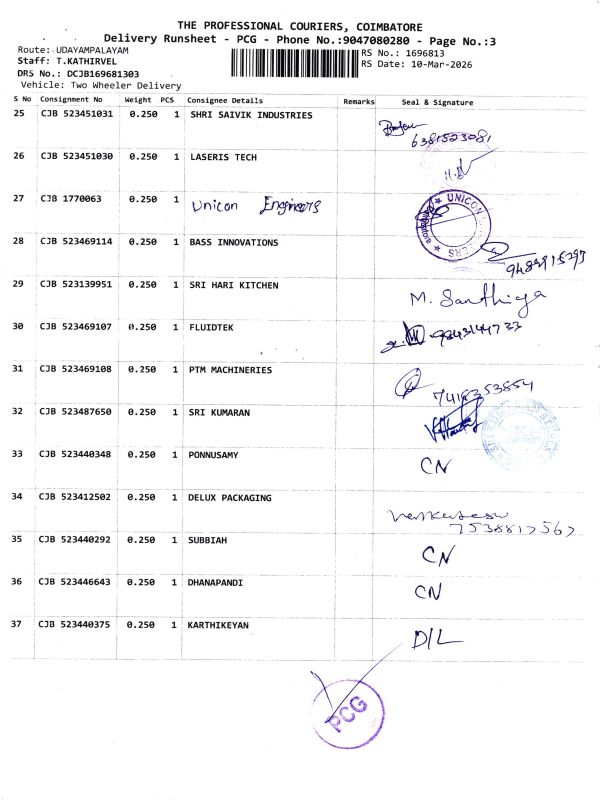 THE PROFESSIONAL COURIERS, COIMBATORE
Delivery Runsheet - PCG - Phone No.:9047080280 - Page No.:3
Route: UDAYAMPALAYAM
Staff: T.KATHIRVEL
DRS No.: DCJB169681303
Vehicle: Two Wheeler Delivery
RS No.: 1696813
RS Date: 10-Mar-2026
S No Consignment No Weight PCS Consignee Details Remarks Seal & Signature
25 CJB 523451031 0.250 1 SHRI SAIVIK INDUSTRIES
6381523081
26 CJB 523451030 0.250 1 LASERIS TECH
27 CJB 1770063 0.250 1 Unicon Engineers
UNICON
28 CJB 523469114 0.250 1 BASS INNOVATIONS
29 CJB 523139951 0.250 1 SRI HARI KITCHEN M. Santhiya
30 CJB 523469107 0.250 1 FLUIDTEK
31 CJB 523469108 0.250 1 PTM MACHINERIES
7418353854
32 CJB 523487650 0.250 1 SRI KUMARAN
33 CJB 523440348 0.250 1 PONNUSAMY CN
34 CJB 523412502 0.250 1 DELUX PACKAGING
7538817567
35 CJB 523440292 0.250 1 SUBBIAH CN
36 CJB 523446643 0.250 1 DHANAPANDI CN
37 CJB 523440375 0.250 1 KARTHIKEYAN D/L
PCG